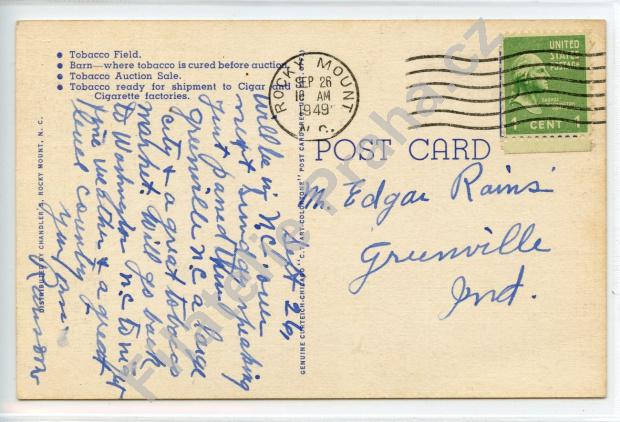 • Tobacco Field.
• Barn—where tobacco is cured before auction.
• Tobacco Auction Sale.
• Tobacco ready for shipment to Cigar and
Cigarette factories.
ROCKY MOUNT,
SEP 26
10 AM
1949
N.C.
UNITED
STATES
POSTAGE
1 CENT 1
POST CARD
Mr. Edgar Rains
Greenville
Ind.
DISTRIBUTED BY CHANDLER'S, ROCKY MOUNT, N. C.
GENUINE CURTEICH-CHICAGO "C. T. ART-COLORTONE" POST CARD
Sept 26
Will be in N.C. over
next Sunday speaking
Just passed thru
Greenville N.C. a large
city & a great tobacco
market. Will go back
to Washington N.C. to night
Fine weather & a great
level country
Filatelie Praha.cz